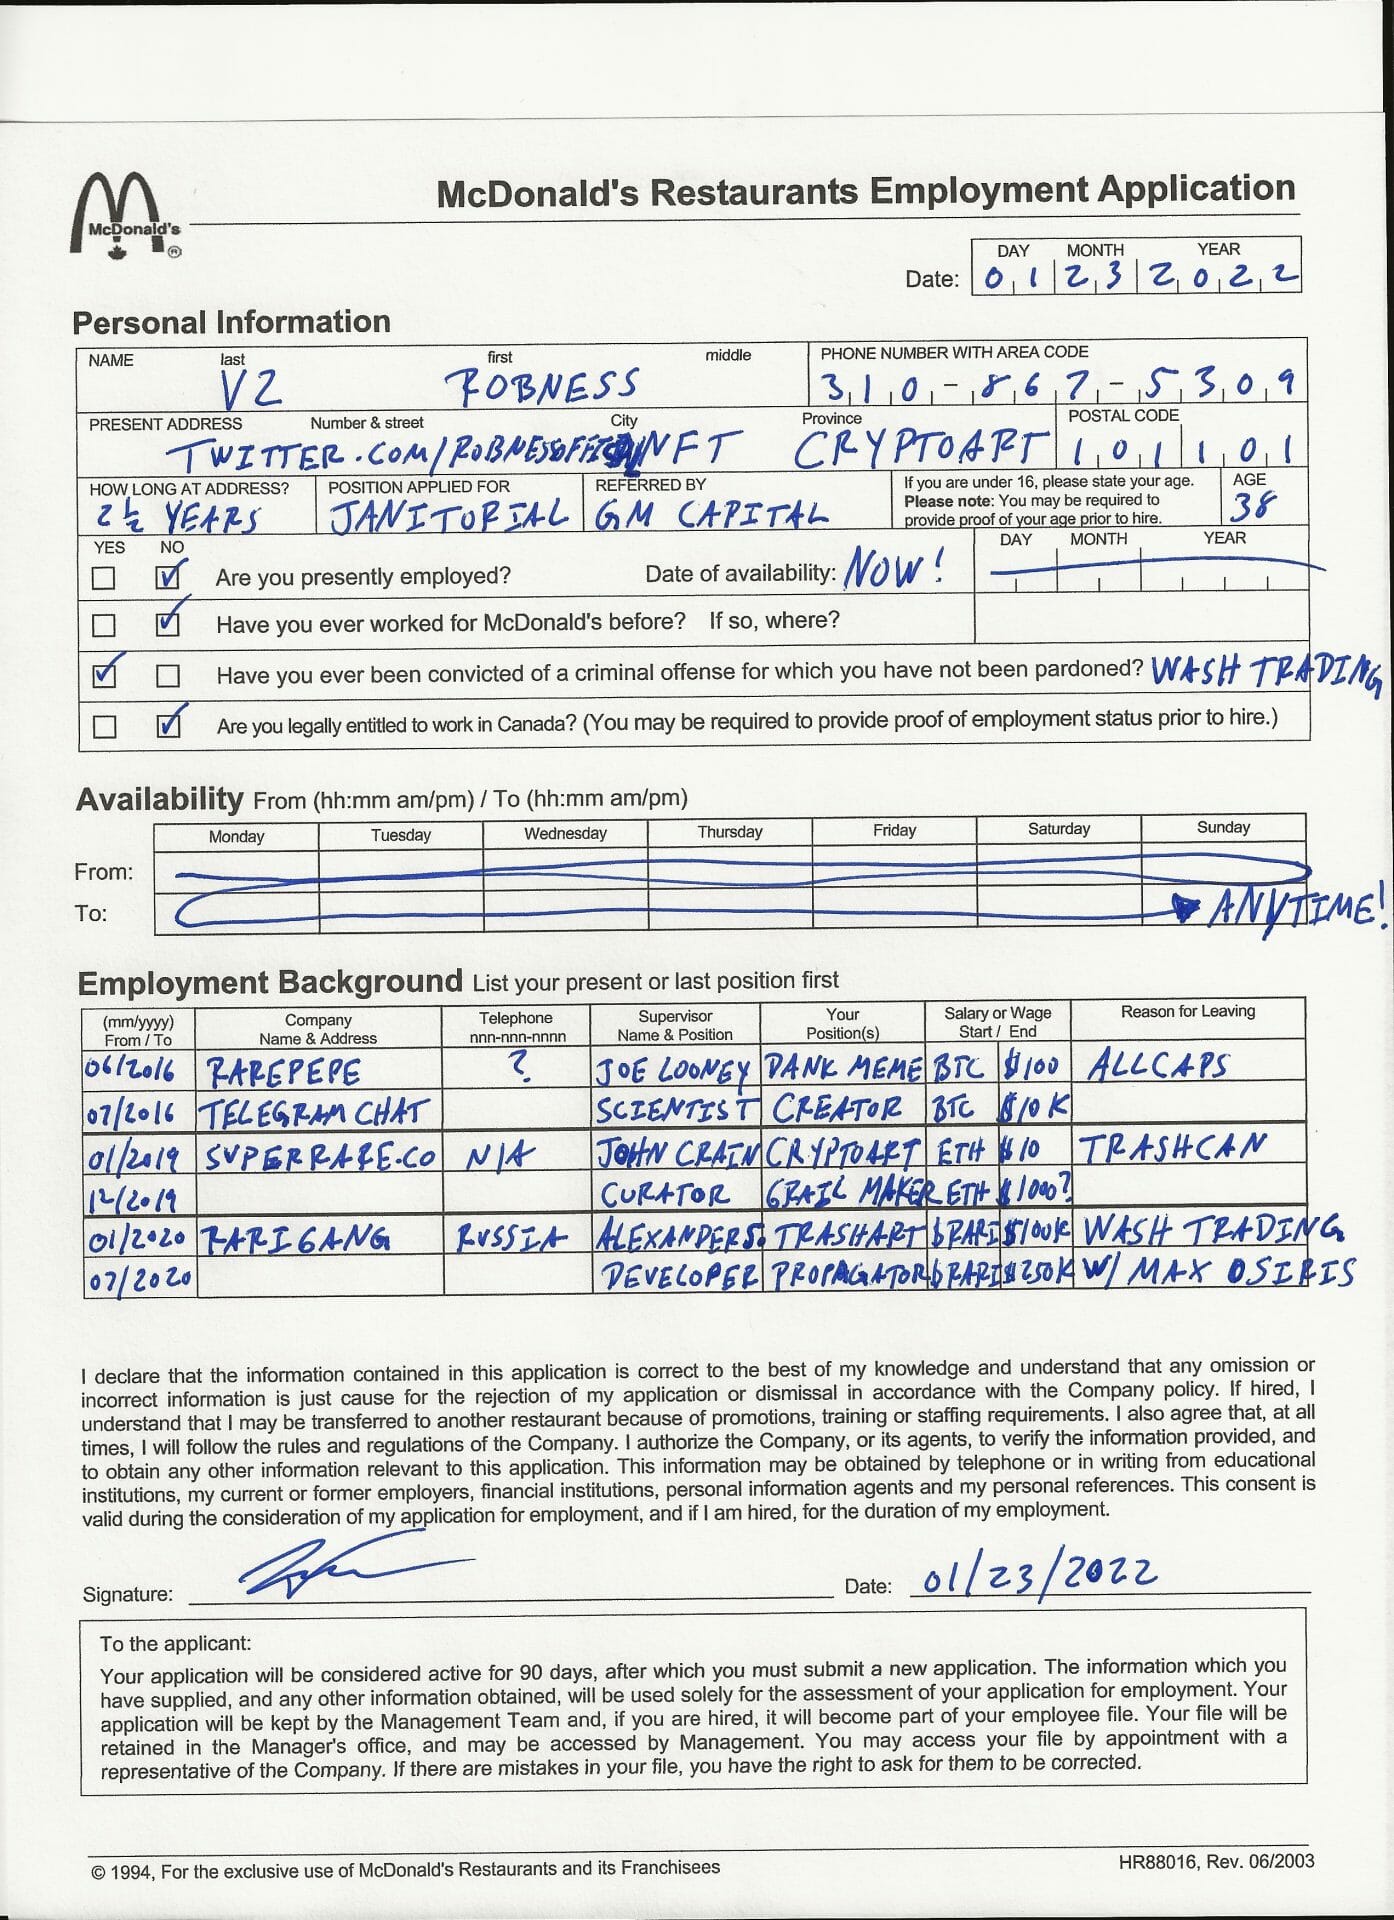 McDonald's ®
McDonald's Restaurants Employment Application
DAY MONTH YEAR
Date: 01 23 2022
Personal Information
NAME last first middle PHONE NUMBER WITH AREA CODE
V2 ROBNESS 310-867-5309
PRESENT ADDRESS Number & street City Province POSTAL CODE
TWITTER.COM/ROBNESSOFFICIAL NFT CRYPTOART 101101
HOW LONG AT ADDRESS? POSITION APPLIED FOR REFERRED BY If you are under 16, please state your age. AGE
Please note: You may be required to
provide proof of your age prior to hire.
2 ½ YEARS JANITORIAL GM CAPITAL 38
YES NO DAY MONTH YEAR
Are you presently employed? Date of availability: NOW!
Have you ever worked for McDonald's before? If so, where?
Have you ever been convicted of a criminal offense for which you have not been pardoned? WASH TRADING
Are you legally entitled to work in Canada? (You may be required to provide proof of employment status prior to hire.)
Availability From (hh:mm am/pm) / To (hh:mm am/pm)
Monday Tuesday Wednesday Thursday Friday Saturday Sunday
From:
To: ANYTIME!
Employment Background List your present or last position first
(mm/yyyy) Company Telephone Supervisor Your Salary or Wage Reason for Leaving
From / To Name & Address nnn-nnn-nnnn Name & Position Position(s) Start / End
06/2016 RAREPEPE ? JOE LOONEY DANK MEME BTC $100 ALLCAPS
07/2016 TELEGRAM CHAT SCIENTIST CREATOR BTC $10K
01/2019 SUPERRARE.CO N/A JOHN CRAIN CRYPTOART ETH $10 TRASHCAN
12/2019 CURATOR GRAIL MAKER ETH $1000?
01/2020 RARIGANG RUSSIA ALEXANDER S. TRASHART $RARI $100K WASH TRADING
07/2020 DEVELOPER PROPAGATOR $RARI $250K W/ MAX OSIRIS
I declare that the information contained in this application is correct to the best of my knowledge and understand that any omission or
incorrect information is just cause for the rejection of my application or dismissal in accordance with the Company policy. If hired, I
understand that I may be transferred to another restaurant because of promotions, training or staffing requirements. I also agree that, at all
times, I will follow the rules and regulations of the Company. I authorize the Company, or its agents, to verify the information provided, and
to obtain any other information relevant to this application. This information may be obtained by telephone or in writing from educational
institutions, my current or former employers, financial institutions, personal information agents and my personal references. This consent is
valid during the consideration of my application for employment, and if I am hired, for the duration of my employment.
Signature: Date: 01/23/2022
To the applicant:
Your application will be considered active for 90 days, after which you must submit a new application. The information which you
have supplied, and any other information obtained, will be used solely for the assessment of your application for employment. Your
application will be kept by the Management Team and, if you are hired, it will become part of your employee file. Your file will be
retained in the Manager's office, and may be accessed by Management. You may access your file by appointment with a
representative of the Company. If there are mistakes in your file, you have the right to ask for them to be corrected.
© 1994, For the exclusive use of McDonald's Restaurants and its Franchisees HR88016, Rev. 06/2003